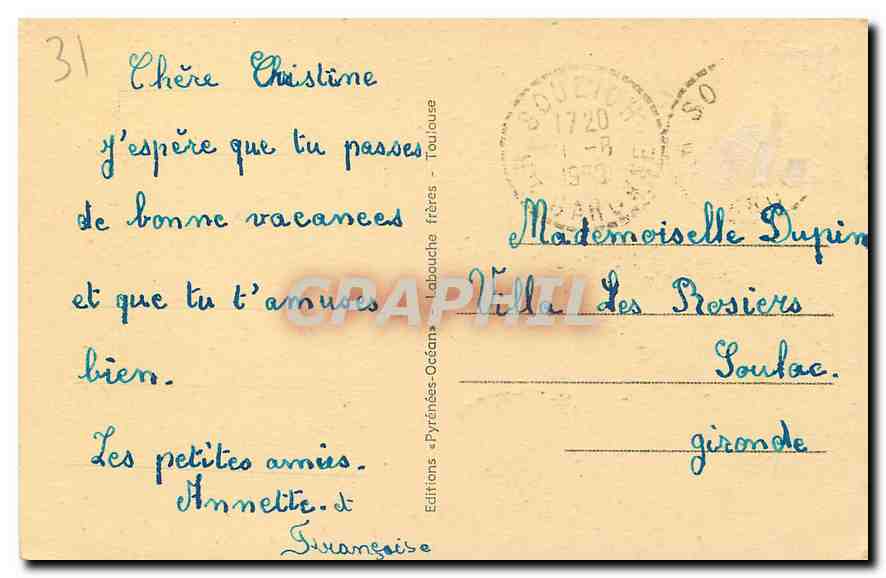 31
Chère Christine
j'espère que tu passes
de bonne vacances
et que tu t'amuses
bien.
Les petites amies.
Annette. et
Françoise
Editions «Pyrénées-Océan» Labouche frères - Toulouse
CPAPHIL
17 20
GARONNE
SO
Mademoiselle Dupin
Villa Les Rosiers
Soulac.
gironde